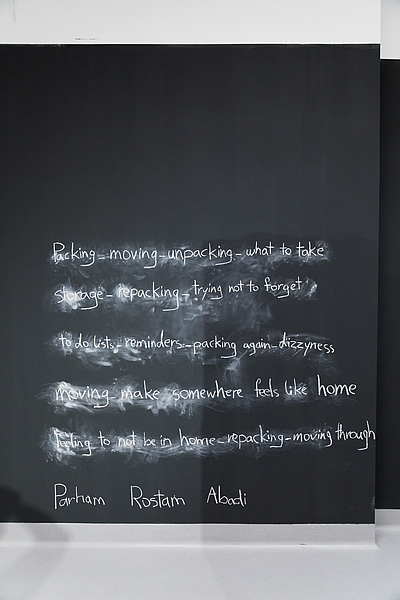 Packing_moving_unpacking_what to take
storage_repacking_trying not to forget
to do lists_reminders_packing again_dizzyness
moving make somewhere feels like home
feeling to not be in home_repacking_moving through
Parham Rostam Abadi